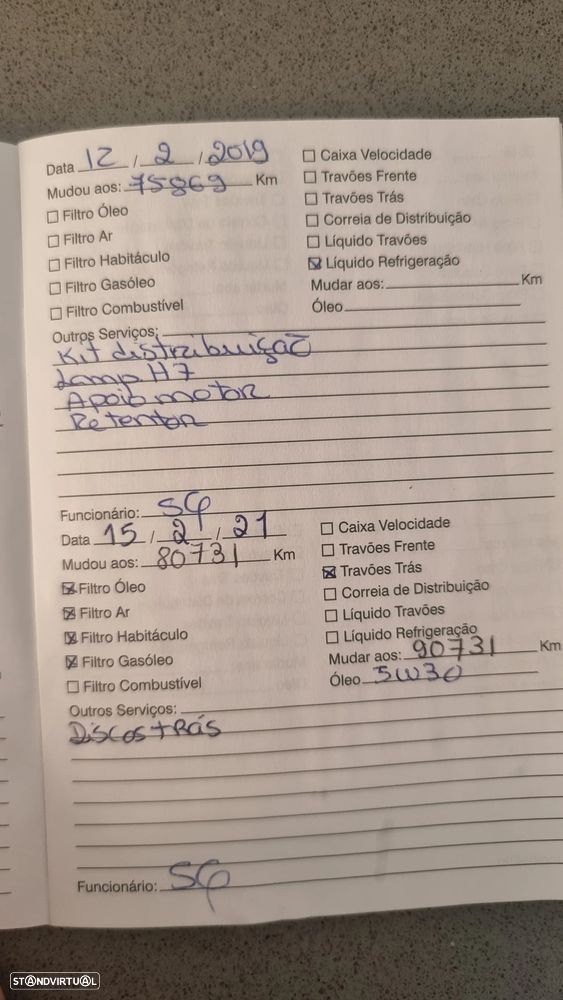 Data 12 / 2 / 2019
Mudou aos: 75869 Km
☐ Filtro Óleo
☐ Filtro Ar
☐ Filtro Habitáculo
☐ Filtro Gasóleo
☐ Filtro Combustível
☐ Caixa Velocidade
☐ Travões Frente
☐ Travões Trás
☐ Correia de Distribuição
☐ Líquido Travões
☒ Líquido Refrigeração
Mudar aos: Km
Óleo
Outros Serviços:
Kit distribuição
Lamp H7
Apoio motor
Retentor
Funcionário:
Data 15 / 2 / 21
Mudou aos: 80731 Km
☒ Filtro Óleo
☒ Filtro Ar
☒ Filtro Habitáculo
☒ Filtro Gasóleo
☐ Filtro Combustível
☐ Caixa Velocidade
☐ Travões Frente
☒ Travões Trás
☐ Correia de Distribuição
☐ Líquido Travões
☐ Líquido Refrigeração
Mudar aos: 90731 Km
Óleo 5W30
Outros Serviços:
Discos tRás
Funcionário:
STANDVIRTUAL